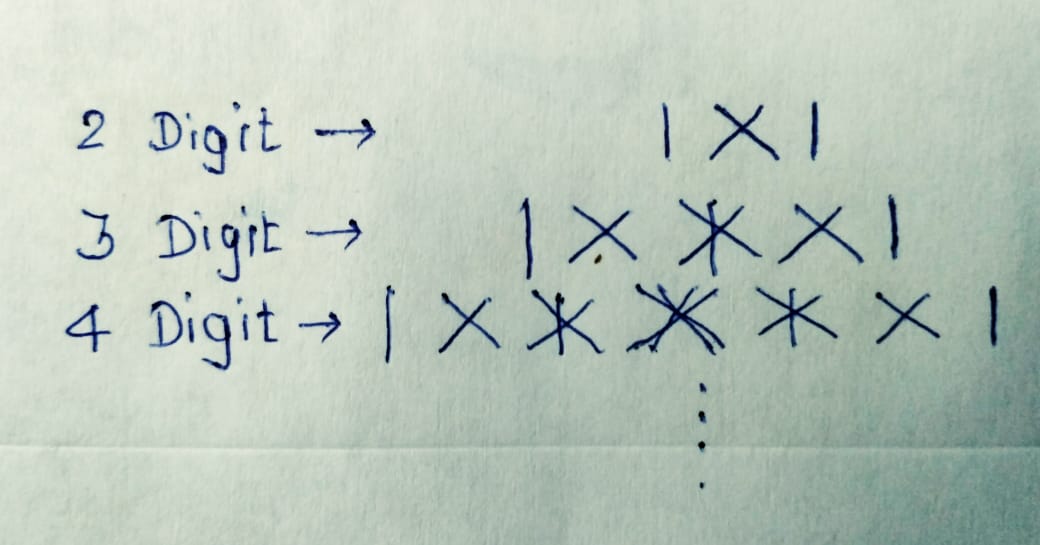 2 Digit → | × |
3 Digit → | × ⚹ × |
4 Digit → | × ⚹ ⤫ ⚹ × |